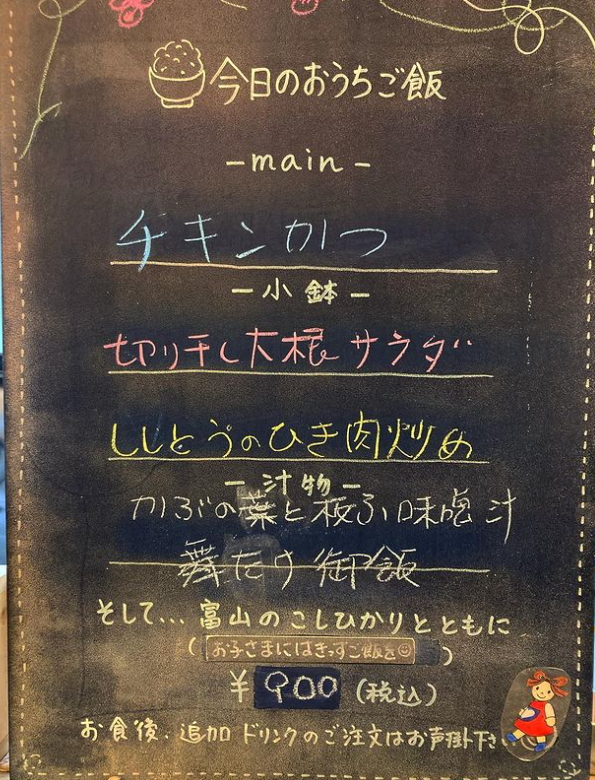 今日のおうちご飯
－main－
チキンかつ
－小鉢－
切り干し大根サラダ
ししとうのひき肉炒め
－汁物－
かぶの葉と板ふ味噌汁
舞たけ御飯
そして... 富山のこしひかりとともに
(お子さまにはきっずご飯を☺)
￥900 (税込)
お食後、追加ドリンクのご注文はお声掛下さい